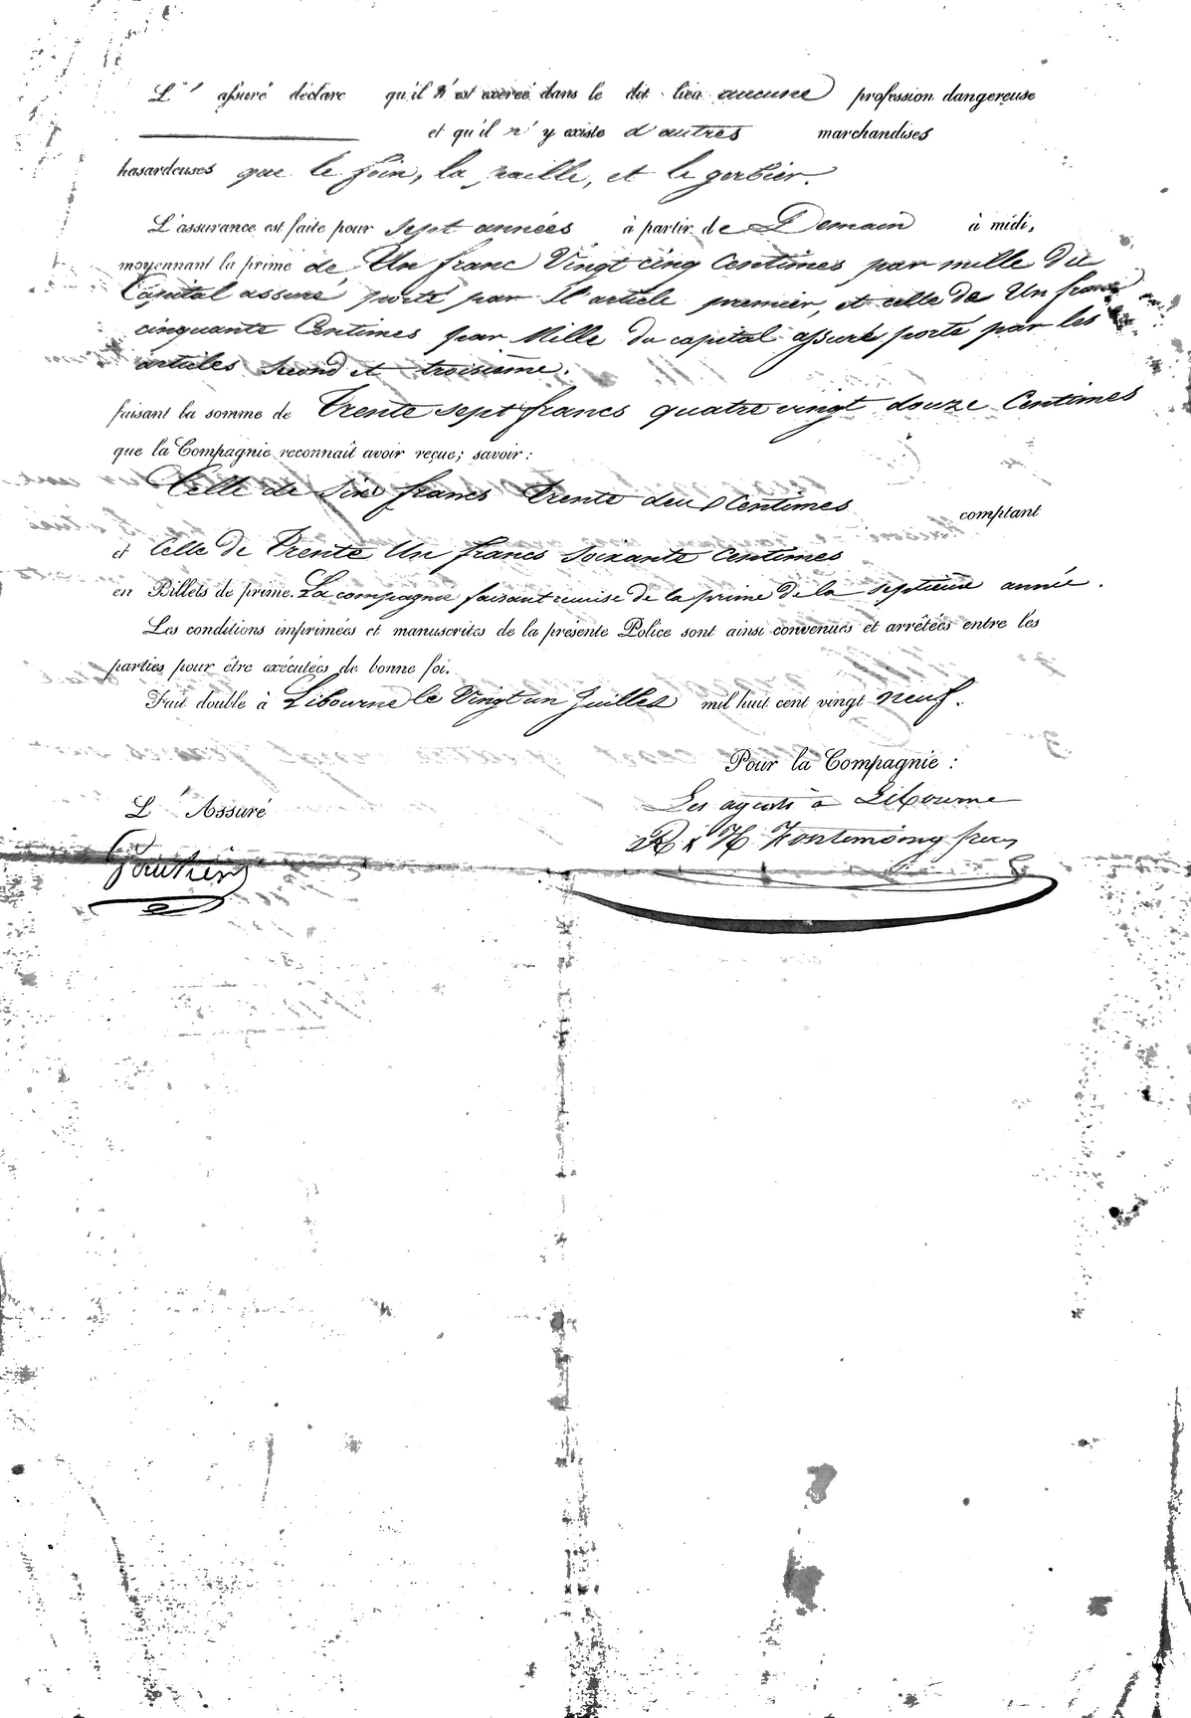 L' assuré déclare qu'il n'est exercé dans le dit lieu aucune profession dangereuse
et qu'il n'y existe d'autres marchandises
hasardeuses que le foin, la paille, et le gerbier.
L'assurance est faite pour sept années à partir de Demain à midi,
moyennant la prime de Un franc Vingt cinq Centimes par mille du
Capital assuré porté par l'article premier, et celle de Un franc
cinquante Centimes par Mille du capital assuré porté par les
articles second et troisième.
faisant la somme de Trente sept francs quatre vingt douze Centimes
que la Compagnie reconnait avoir reçue; savoir:
Celle de Six francs trente deux Centimes
comptant
et Celle de Trente Un francs Soixante Centimes
en Billets de prime. La compagnie faisant remise de la prime de la septième année.
Les conditions imprimées et manuscrites de la présente Police sont ainsi convenues et arrêtées entre les
parties pour être exécutées de bonne foi.
Fait double à Libourne le Vingt un Juillet mil huit cent vingt neuf.
Pour la Compagnie:
Les agents à Libourne
L' Assuré
R & H Fontemoing frères